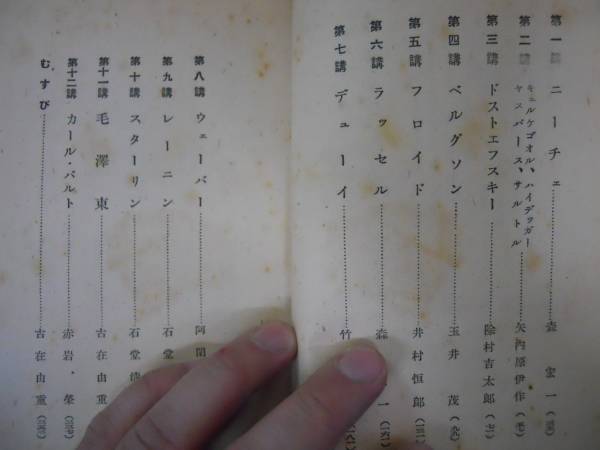 第一講 ニーチェ 森 宏一
第二講 キェルケゴオル、ハイデッガー
ヤスパース、サルトル 矢内原伊作
第三講 ドストエフスキー 除村吉太郎
第四講 ベルグソン 玉井 茂
第五講 フロイド 井村恒郎
第六講 ラッセル 森 一
第七講 デューイ 竹
第八講 ウェーバー 阿閉
第九講 レーニン 石堂
第十講 スターリン 石堂
第十一講 毛澤東 古在由重
第十二講 カール・バルト 赤岩 榮
むすび 古在由重